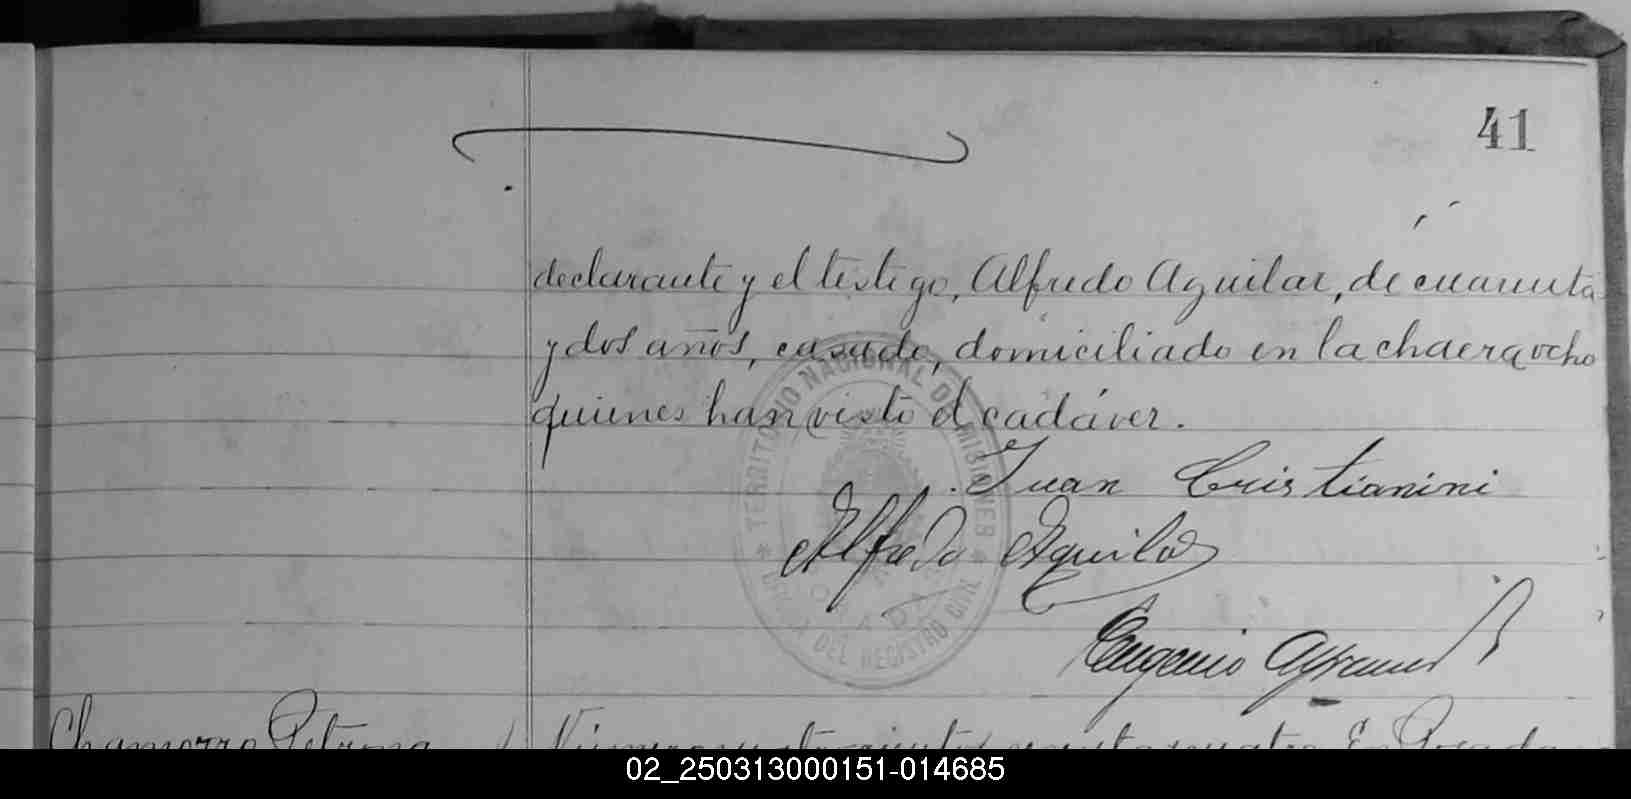 41
declarante y el testigo, Alfredo Aguilar, de cuarenta
y dos años, casado, domiciliado en la chacra ocho
quienes han visto el cadáver.
Juan Cristianini
Alfredo Aguilar
Eugenio
TERRITORIO NACIONAL DE MISIONES
DEL REGISTRO CIVIL
Chamorro Petrona
Número En Posadas
02_250313000151-014685